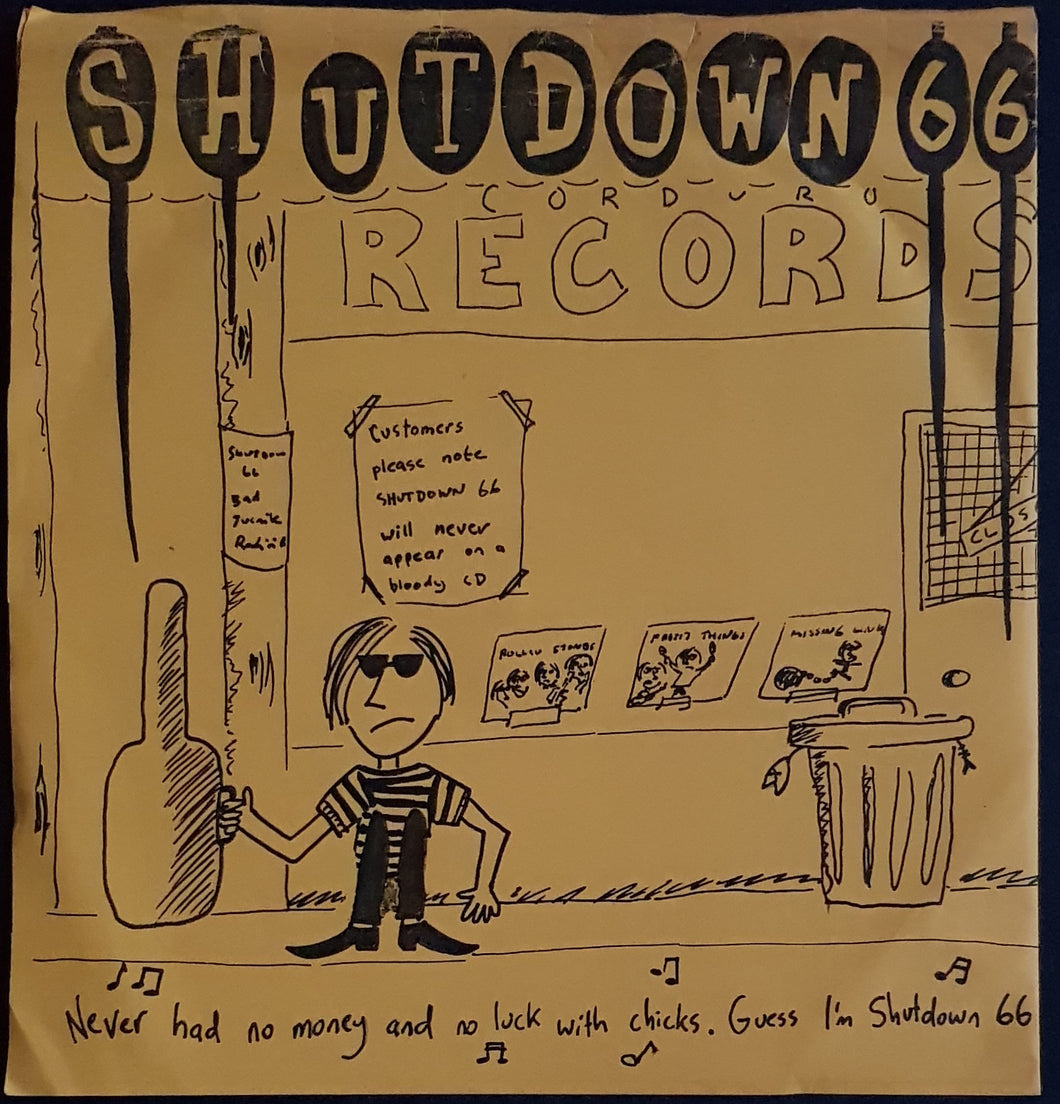 SHUTDOWN 66
CORDURO
RECORDS
Customers
please note
SHUTDOWN 66
will never
appear on a
bloody CD
Shutdown
66
Bad
ROLLIN STONES
PRETTY THINGS
MISSING LINKS
CL OS
Never had no money and no luck with chicks. Guess I'm Shutdown 66